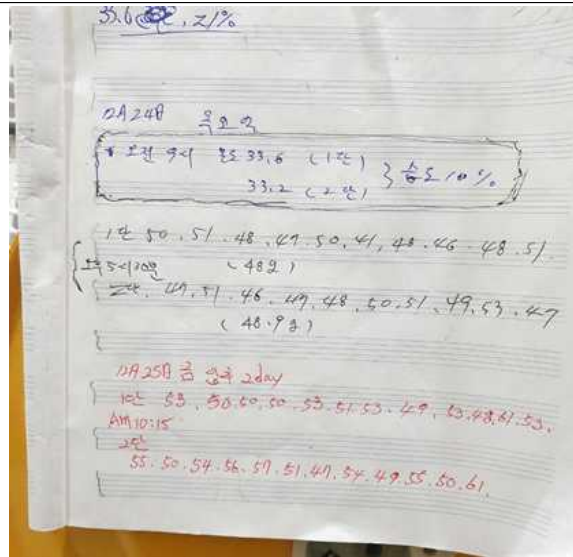 33.6 , 21%
12月24日 목요일
* 오전 9시 온도 33.6 (1관)
33.2 (2관) } 습도 10%
1관 50. 51. 48. 49. 50. 41. 48. 46. 48. 51.
5시30분 (48g)
2관. 49. 51. 46. 49. 48. 50. 51. 49. 53. 47
(48.9g)
12月25日 금 2day
1관 53. 50. 50. 50. 53. 51. 53. 49. 53. 48. 61. 53.
AM 10:15
2관
55. 50. 54. 56. 57. 51. 47. 54. 49. 55. 50. 61.